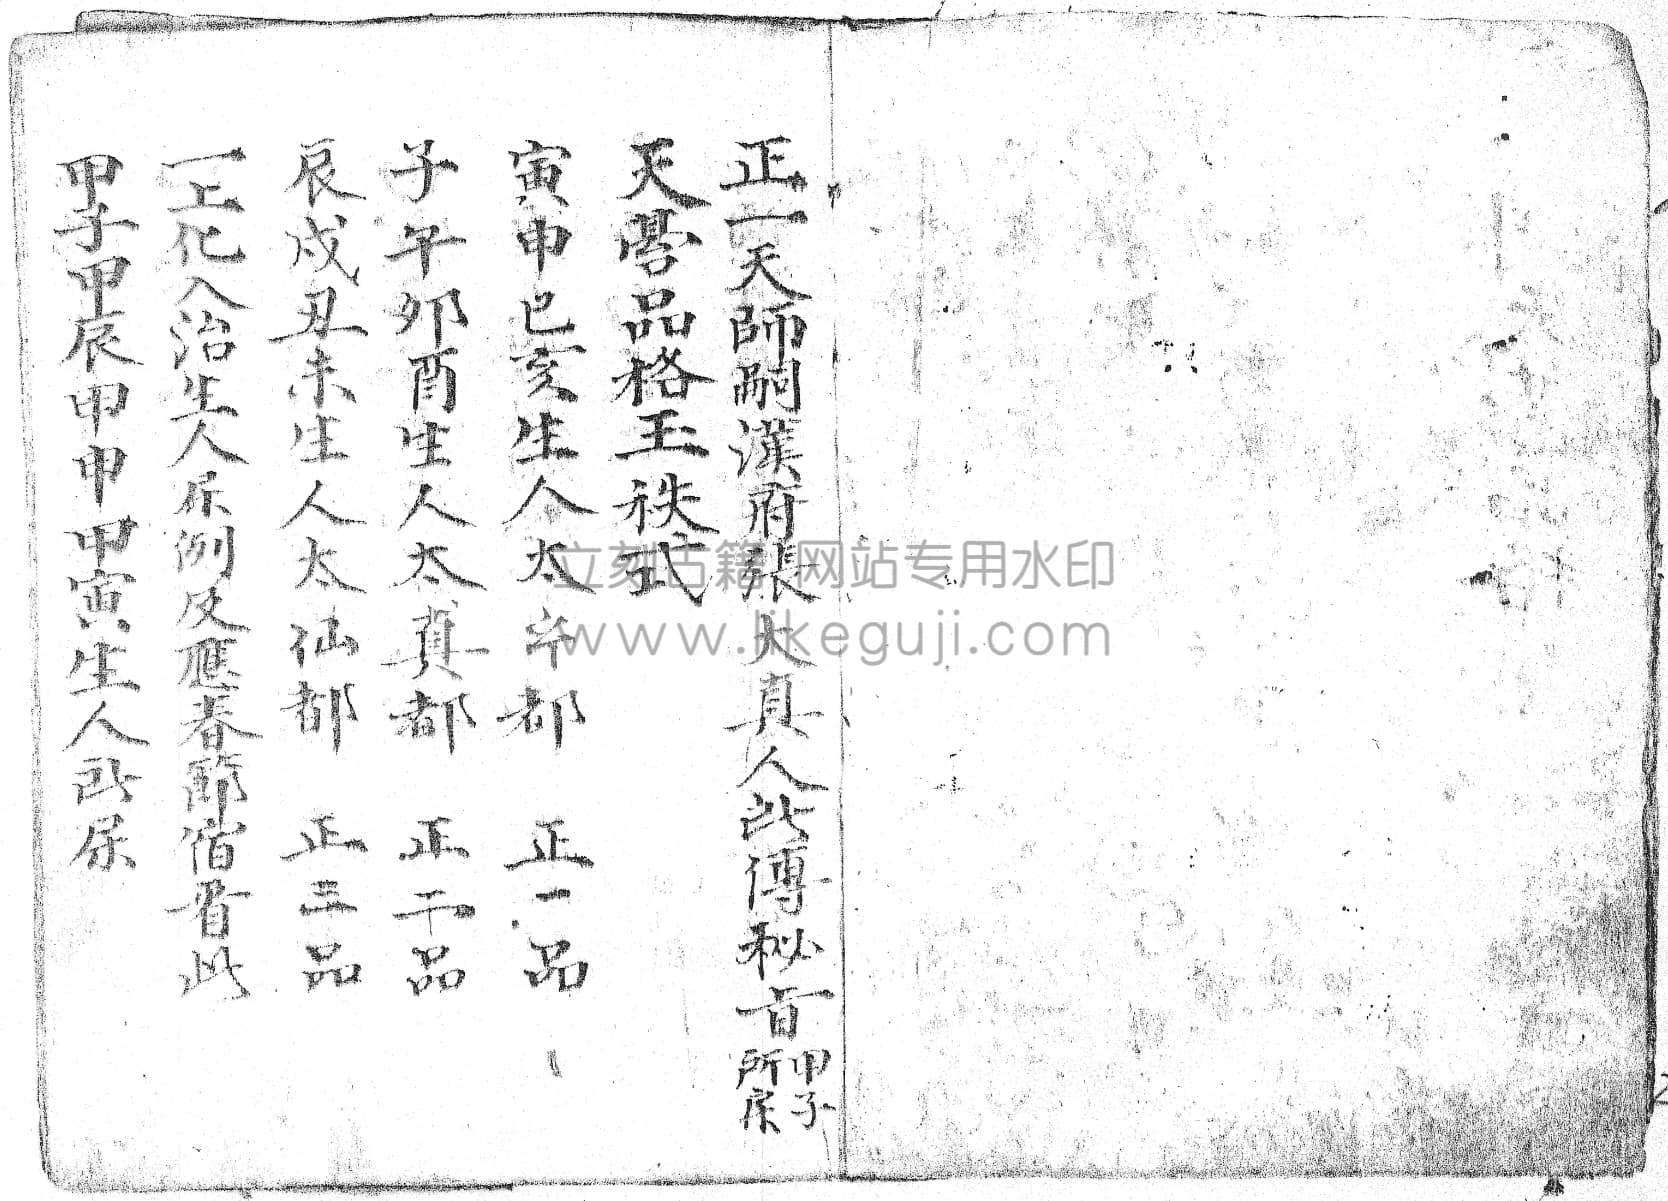 正一天師嗣漢府張大真人此傳秘旨甲子所屎
天曹品格王秩式
寅申巳亥生人太　都　正一品
子午卯酉生人太真都　正二品
辰戍丑未生人太仙都　正三品
一上化入治生人屎例反應春節宿省此
甲子甲辰甲申甲寅生人所屎
立刻古籍 网站专用水印
www.likeguji.com